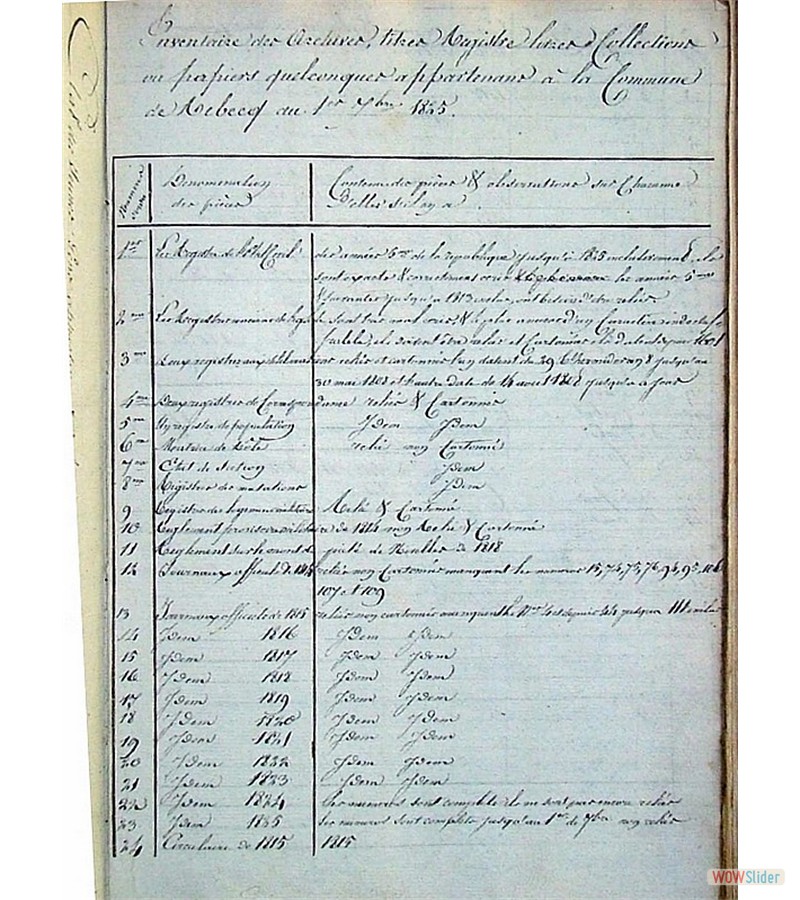 Inventaire des Archives, titres Registre livres Collections
ou papiers quelconques appartenans à la Commune
de Rebecq du 1er 7bre 1825.
Numeros
Denomenation
des pièces
Contenu des pièces & observations sur Chacunne
d'elles s'il y a
1er Les Registre de l'état Civil des années 5me de la republique jusqu'à 1825 inclusivement
sont exacte & correctement les années 5me
& suivantes jusqu'a 1813 reliés, ont besoin d'être reliés
2me Les Registres anciens sont très mal &
reliés et Cartonnés
3me Deux registres aux reliés et cartonnés l'un datant du 29 jusqu'au
30 mai 1808 et l'autre date du 14 aout 1808 jusqu'à ce jour
4me Deux registres de Correspondance reliés & Cartonnés
5me Un registre de population Idem Idem
6me relié non Cartonné
7me Etat de Section Idem
8me Registres des mutations Idem
9 Registre Relié & Cartonné
10 Reglement provisoire de 1814 non Relié & Cartonné
11 Reglement de Nivelles de 1818
12 Journaux officiels de 1814 reliés non Cartonnés manquant les numeros 15, 74, 75, 76, 94, 95, 106
107 et 109
13 Journaux officiels de 1815 reliés non cartonnés manquant
14 Idem 1816 Idem Idem
15 Idem 1817 Idem Idem
16 Idem 1818 Idem Idem
17 Idem 1819 Idem Idem
18 Idem 1820 Idem Idem
19 Idem 1821 Idem Idem
20 Idem 1822 Idem Idem
21 Idem 1823 Idem Idem
22 Idem 1824 Les numeros sont complets ils ne sont pas encore reliés
23 Idem 1825 Les numeros sont complets jusqu'au 1er de 7bre non reliés
24 Circulaire de 1815 1815
WOWSlider